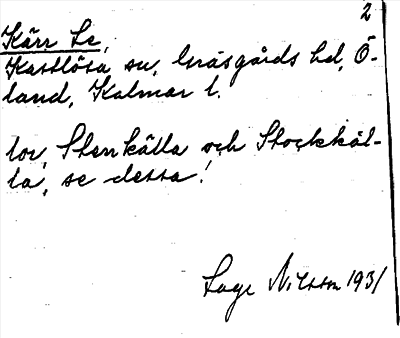 2
Kärr Le,
Kastlösa sn, Gräsgårds hd, Ö-
land, Kalmar l.
lov, Stenkälla och Stockkäl-
la, se dessa!
Lage Nilsson 1931